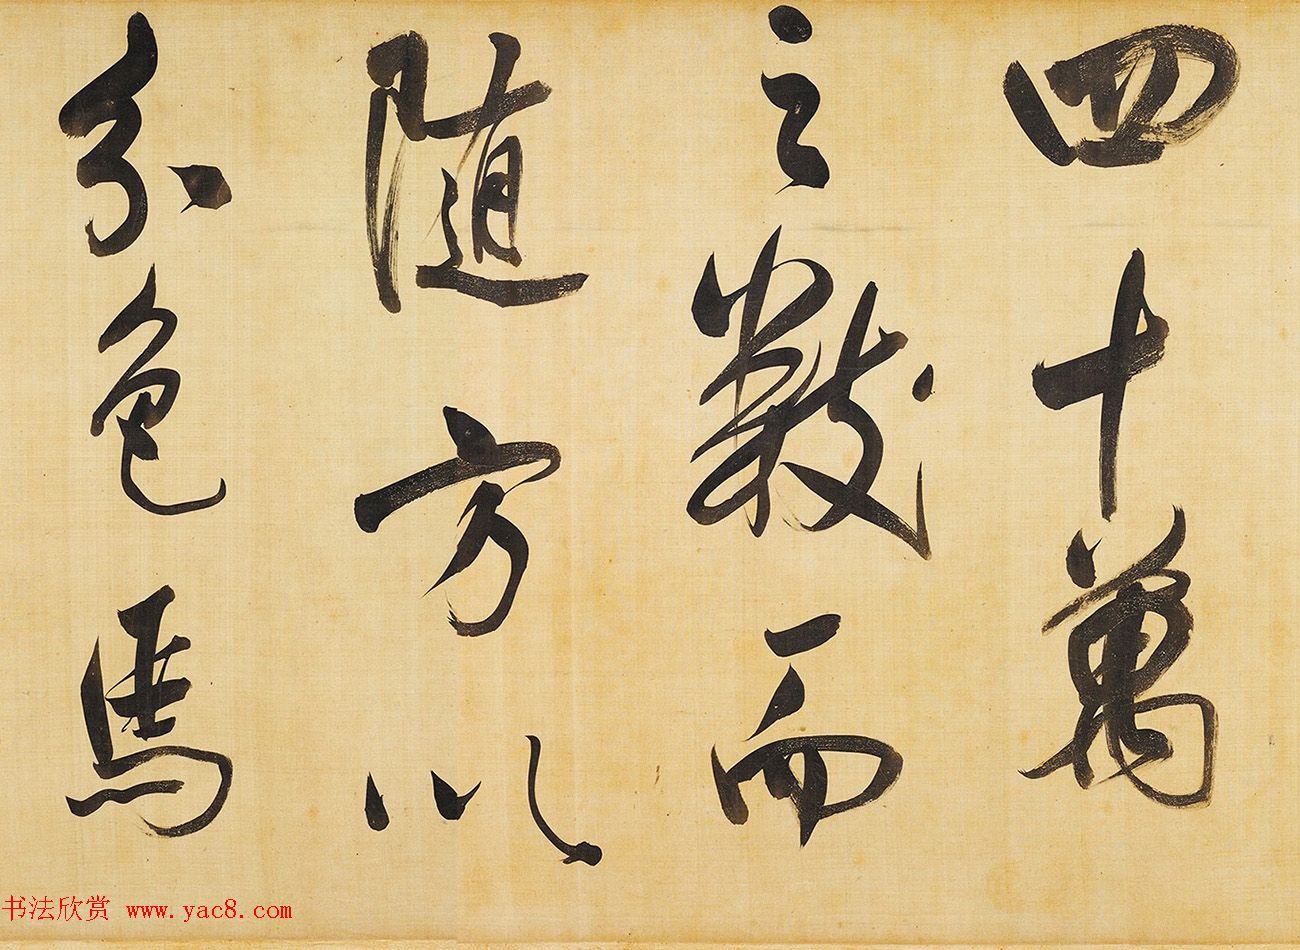 四十萬
之數而
随方以
分色馬
书法欣赏 www.yac8.com